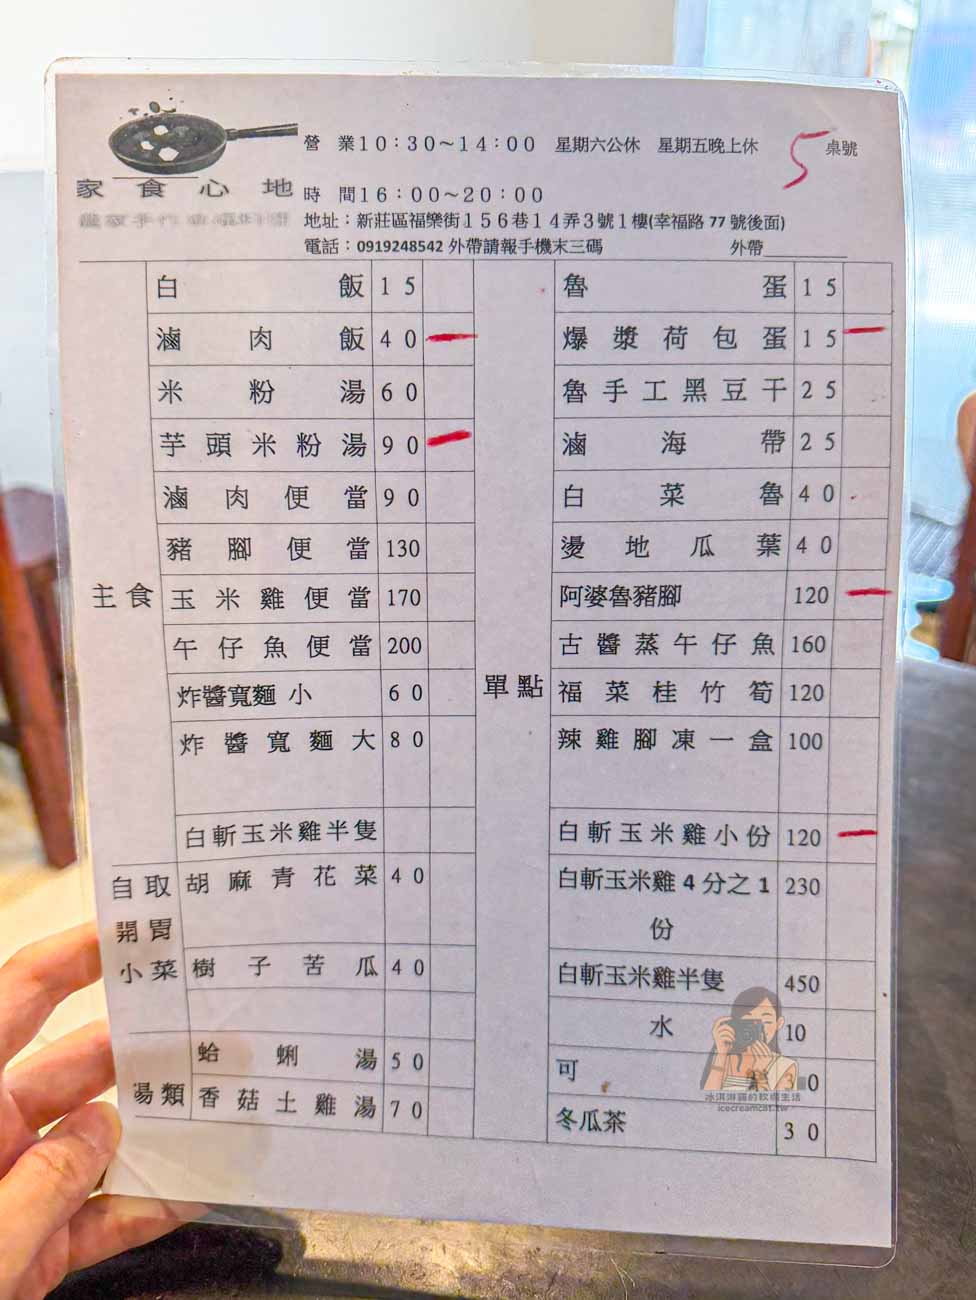 營 業10：30～14：00 星期六公休 星期五晚上休 5 桌號
家食心地
時 間16：00～20：00
地址：新莊區福樂街156巷14弄3號1樓(幸福路 77 號後面)
電話：0919248542 外帶請報手機末三碼 外帶
主食
白飯 15
滷肉飯 40
米粉湯 60
芋頭米粉湯 90
滷肉便當 90
豬腳便當 130
玉米雞便當 170
午仔魚便當 200
炸醬寬麵 小 60
炸醬寬麵大 80
白斬玉米雞半隻
自取
開胃
小菜
胡麻青花菜 40
樹子苦瓜 40
湯類
蛤蜊湯 50
香菇土雞湯 70
單點
魯蛋 15
爆漿荷包蛋 15
魯手工黑豆干 25
滷海帶 25
白菜魯 40
燙地瓜葉 40
阿婆魯豬腳 120
古醬蒸午仔魚 160
福菜桂竹筍 120
辣雞腳凍一盒 100
白斬玉米雞小份 120
白斬玉米雞 4 分之 1 230
份
白斬玉米雞半隻 450
水 10
可 30
冬瓜茶 30
冰淇淋貓的軟爛生活
icecreamcat.tw